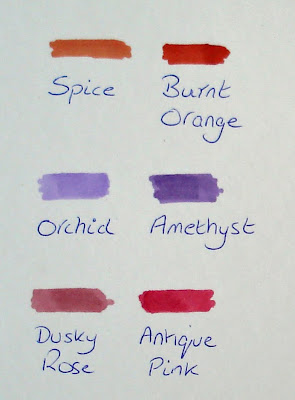 Spice Burnt
Orange
Orchid Amethyst
Dusky Antique
Rose Pink